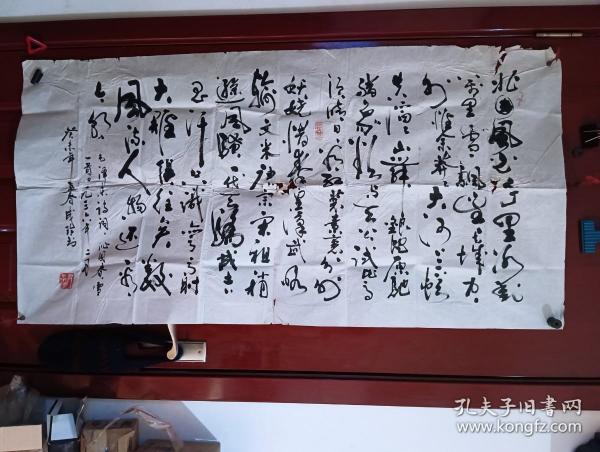 北国风光千里冰封
万里雪飘望长城内
外惟余莽莽大河上下顿
失滔滔山舞银蛇原驰
蜡象欲与天公试比高
须晴日看红装素裹分外
妖娆惜秦皇汉武略
输文采唐宗宋祖稍
逊风骚一代天骄成吉
思汗只识弯弓射
大雕俱往矣数
风流人物还看
今朝
毛泽东诗词沁园春雪
一首一九三六年二月
癸未年春
孔夫子旧书网
www.kongfz.com